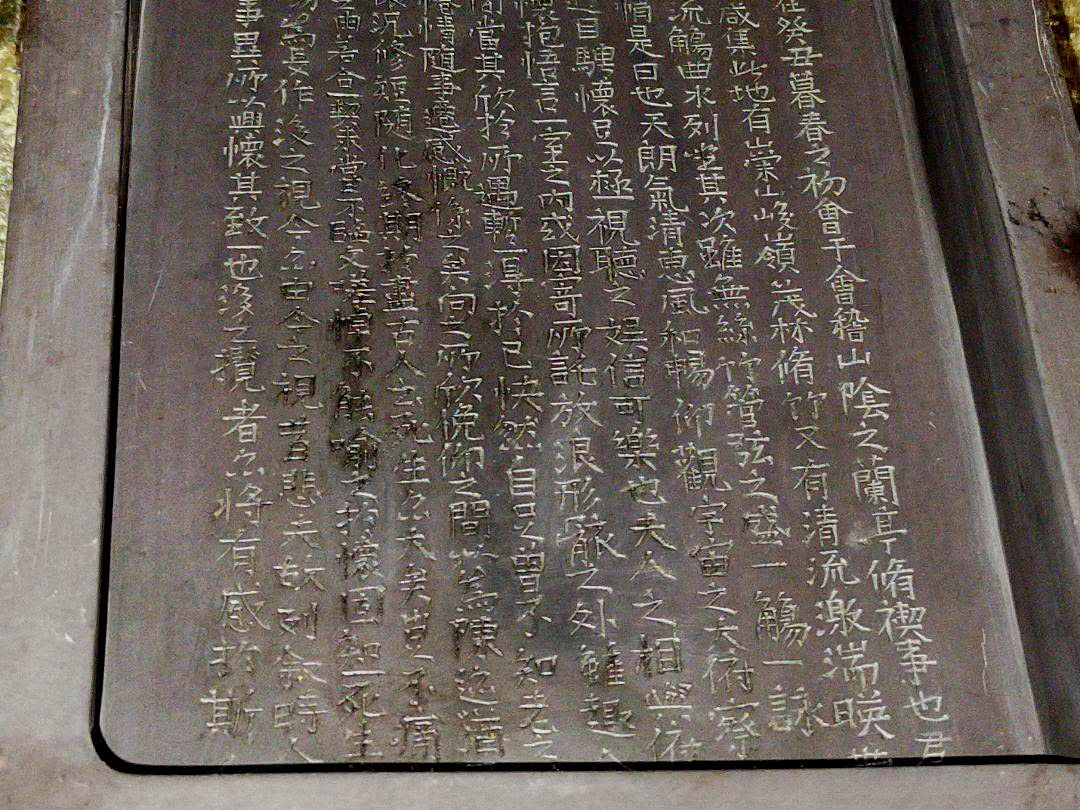 在癸丑暮春之初會于會稽山陰之蘭亭脩禊事也君
咸集此地有崇山峻嶺茂林脩竹又有清流激湍暎
流觴曲水列坐其次雖無絲竹管弦之盛一觴一詠
是日也天朗氣清惠風和暢仰觀宇宙之大俯察
遊目騁懷足以極視聽之娛信可樂也夫人之相與俯
懷抱悟言一室之內或因寄所託放浪形骸之外雖趣
間當其欣於所遇暫得於己快然自足曾不知老之
惓情隨事遷感慨係之矣向之所欣俛仰之間以為陳迹猶
懷況修短隨化終期於盡古人云死生亦大矣豈不痛
由若合一契未嘗不臨文嗟悼不能喻之於懷固知一死生
殤為妄作後之視今亦由今之視昔悲夫故列敘時人
事異所以興懷其致一也後之攬者亦將有感於斯